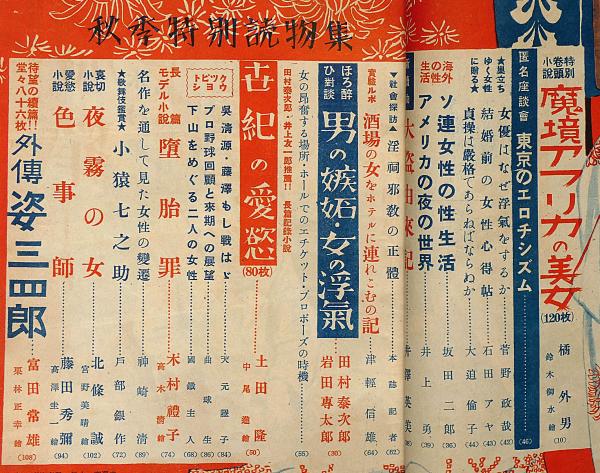 秋季特別読物集
特別巻頭小説 魔境アフリカの美女 (120枚) 橘外男 鈴木御水絵 (10)
匿名座談會 東京のエロチシズム (46)
★巣立ちゆく女性に贈る★
女優はなぜ浮氣をするか 菅野政敏 (42)
結婚前の女性心得帖 石田アヤ (43)
貞操は嚴格であらねばならぬか 大迫倫子 (44)
海外の性生活
ソ連女性の性生活 坂田二郎 (36)
アメリカの夜の世界 井上勇 (39)
大盗由来記
▼社會探訪▲ 淫祠邪教の正體 本誌記者 (62)
實態ルポ 酒場の女をホテルに連れこむの記 津輕信雄 (64)
ほろ醉ひ對談 男の嫉妬・女の浮氣 田村泰次郎 岩田專太郎 (30)
女の昂奮する場所・ホールでのエチケット・プロポーズの時機 (55)
田村泰次郎・井上友一郎推薦!! 長篇記録小説
世紀の愛慾 (80枚) 土田隆 中尾進絵 (50)
トピック ショウ
呉清源・藤澤もし戰はゞ 天元隱子 (84)
プロ野球回顧と来期への展望 曲球生 (86)
下山をめぐる二人の女性 國鐵主人 (88)
長篇モデル小説 墮胎罪 木村禮子 高木清絵 (74)
名作を通して見た女性の變遷 神崎清 (89)
★歌舞伎鑑賞★ 小猿七之助 戸部銀作 (72)
哀切小説 夜霧の女 北條誠 宮野美晴絵 (102)
愛慾小説 色事師 藤田秀彌 高澤圭一絵 (94)
待望の續篇!! 堂々八十六枚!! 外傳姿三四郎 富田常雄 栗林正幸絵 (108)